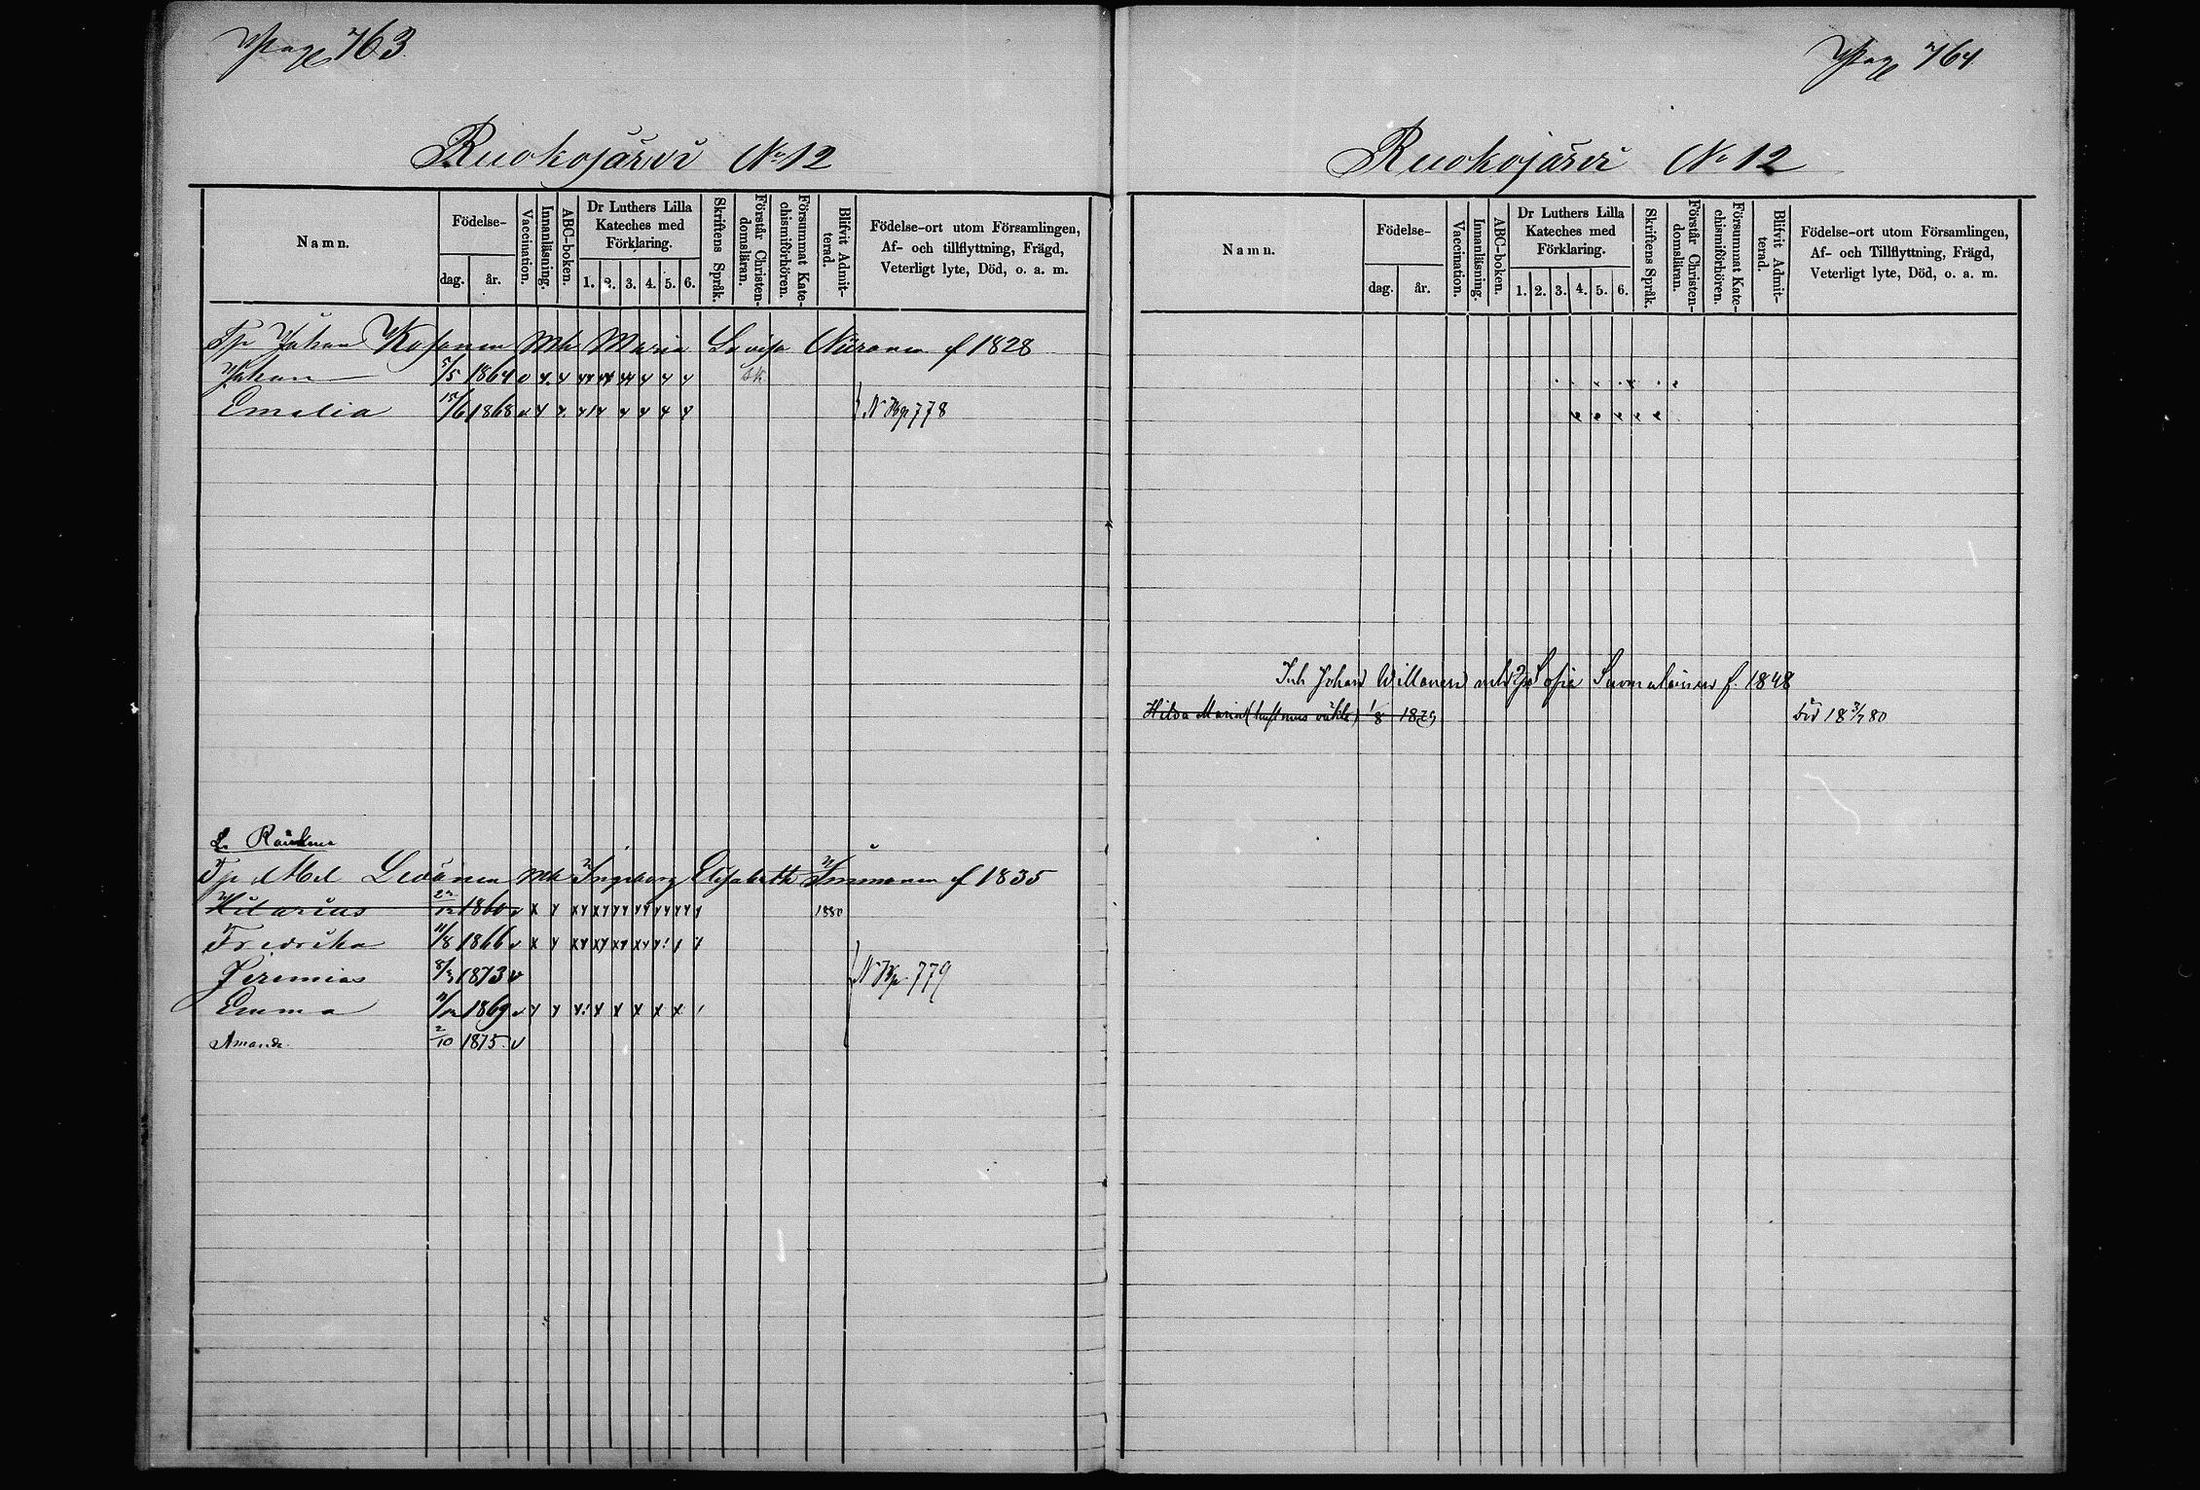 Pag 763
Ruokojärvi No 12
Namn.
Födelse-
dag.
år.
Vaccination.
Innanläsning.
ABC-boken.
Dr Luthers Lilla Kateches med Förklaring.
1. 2. 3. 4. 5. 6.
Skriftens Språk.
Förstår Christendomsläran.
Försummat Katechismiförhören.
Blifvit Admitterad.
Födelse-ort utom Församlingen,
Af- och tillflyttning, Frägd,
Veterligt lyte, Död, o. a. m.
Johan Kosonen Mh Maria Lovisa f 1828
Johan 5/5 1864
Emalia 15/6 1868 N 778
Abel Mh Ingeborg Elisabeth Immonen f 1835
Hilarius 1860 1880
Fredrika 11/8 1866
Jeremias 1873 N 779
Emma 1869
Amanda 2/10 1875
Pag 764
Ruokojärvi No 12
Namn.
Födelse-
dag.
år.
Vaccination.
Innanläsning.
ABC-boken.
Dr Luthers Lilla Kateches med Förklaring.
1. 2. 3. 4. 5. 6.
Skriftens Språk.
Förstår Christendomsläran.
Försummat Katechismiförhören.
Blifvit Admitterad.
Födelse-ort utom Församlingen,
Af- och Tillflyttning, Frägd,
Veterligt lyte, Död, o. a. m.
Inh Johan Willanen Sofia Suomalainen f. 1848
Hilda Maria 1/8 1879 död 18 3/7 80